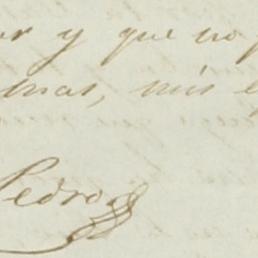 y que no
mas, mis
Pedro